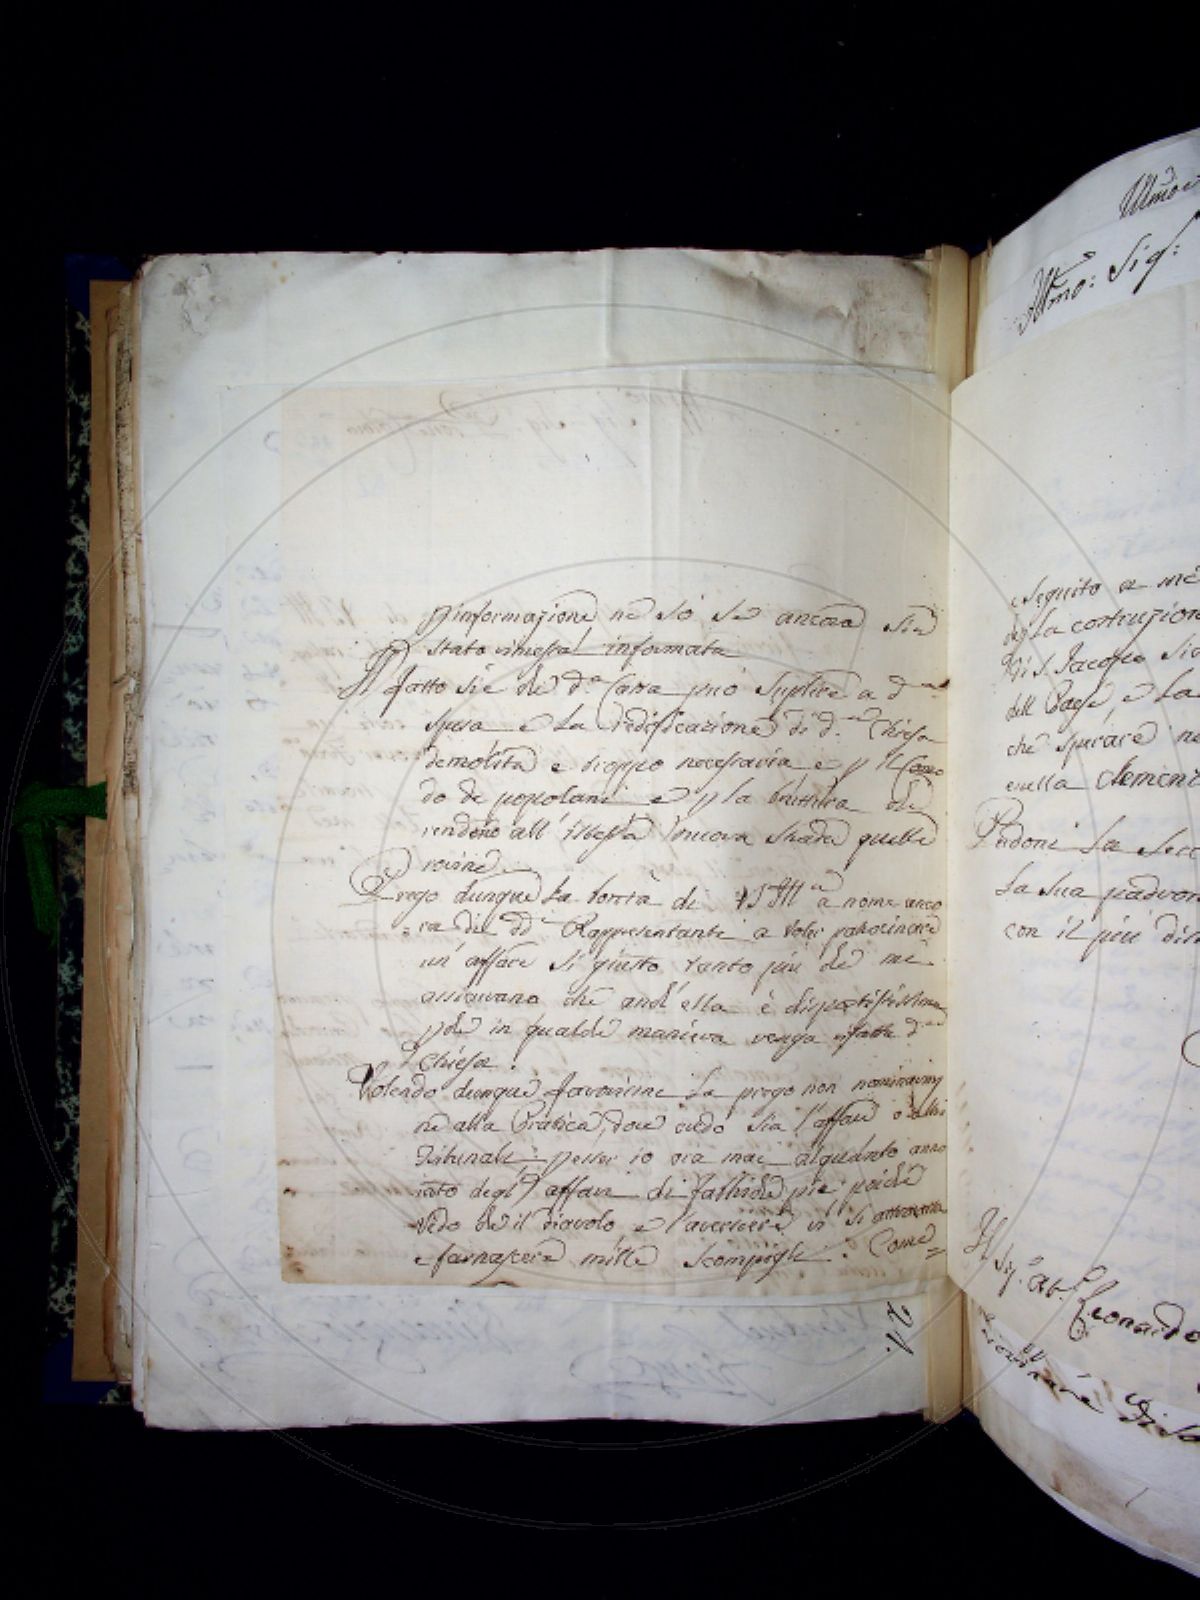 p informazione ne sò se ancora sia
stato rimessa informata
Il fatto si è che d.a Cassa può suplire a d.a
spesa e la redificazione di d.a Chiesa
demolita e troppo necessaria e p il Como
do de popolani e p la bruttura che
rendono all' istessa nuova strada quelle
rovine.
Prego dunque la bontà di VS Ill.a a nome anco
ra die dd.i Rappresentanti a voler patrocinare
un' affare sì giusto tanto più che mi
assicurano che anch' ella è dispostissima
p che in qualche maniera venga rifatta d.a
Chiesa.
Volendo dunque favorirmi la prego non nominarmi
ne alla Pratica, dove credo sia l'affare o altri
Tribunali p esser io ora mai alquanto anno
iato degl' affari di fabbriche pie, poiche
vedo che il diavolo e l'avversere vi si attraversa
e fa nascere mille scompigli. Come
Ill.mo: Sig:
eseguito a me
p la costruzion
di S. Jacopo
dell Paese, e la
che sperare
nella clemenz
Perdoni la secc
la sua padron
con il più dis
Il Sig.e Ab. Leonardo